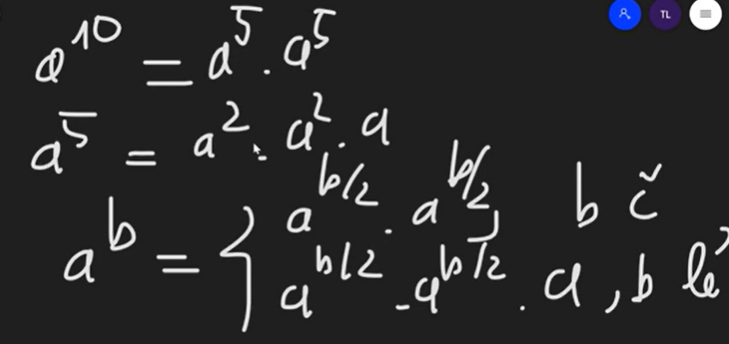 TL
a^10 = a^5 . a^5
a^5 = a^2 . a^2 . a
a^b = { a^b/2 . a^b/2, b č
a^b/2 . a^b/2 . a, b lẻ